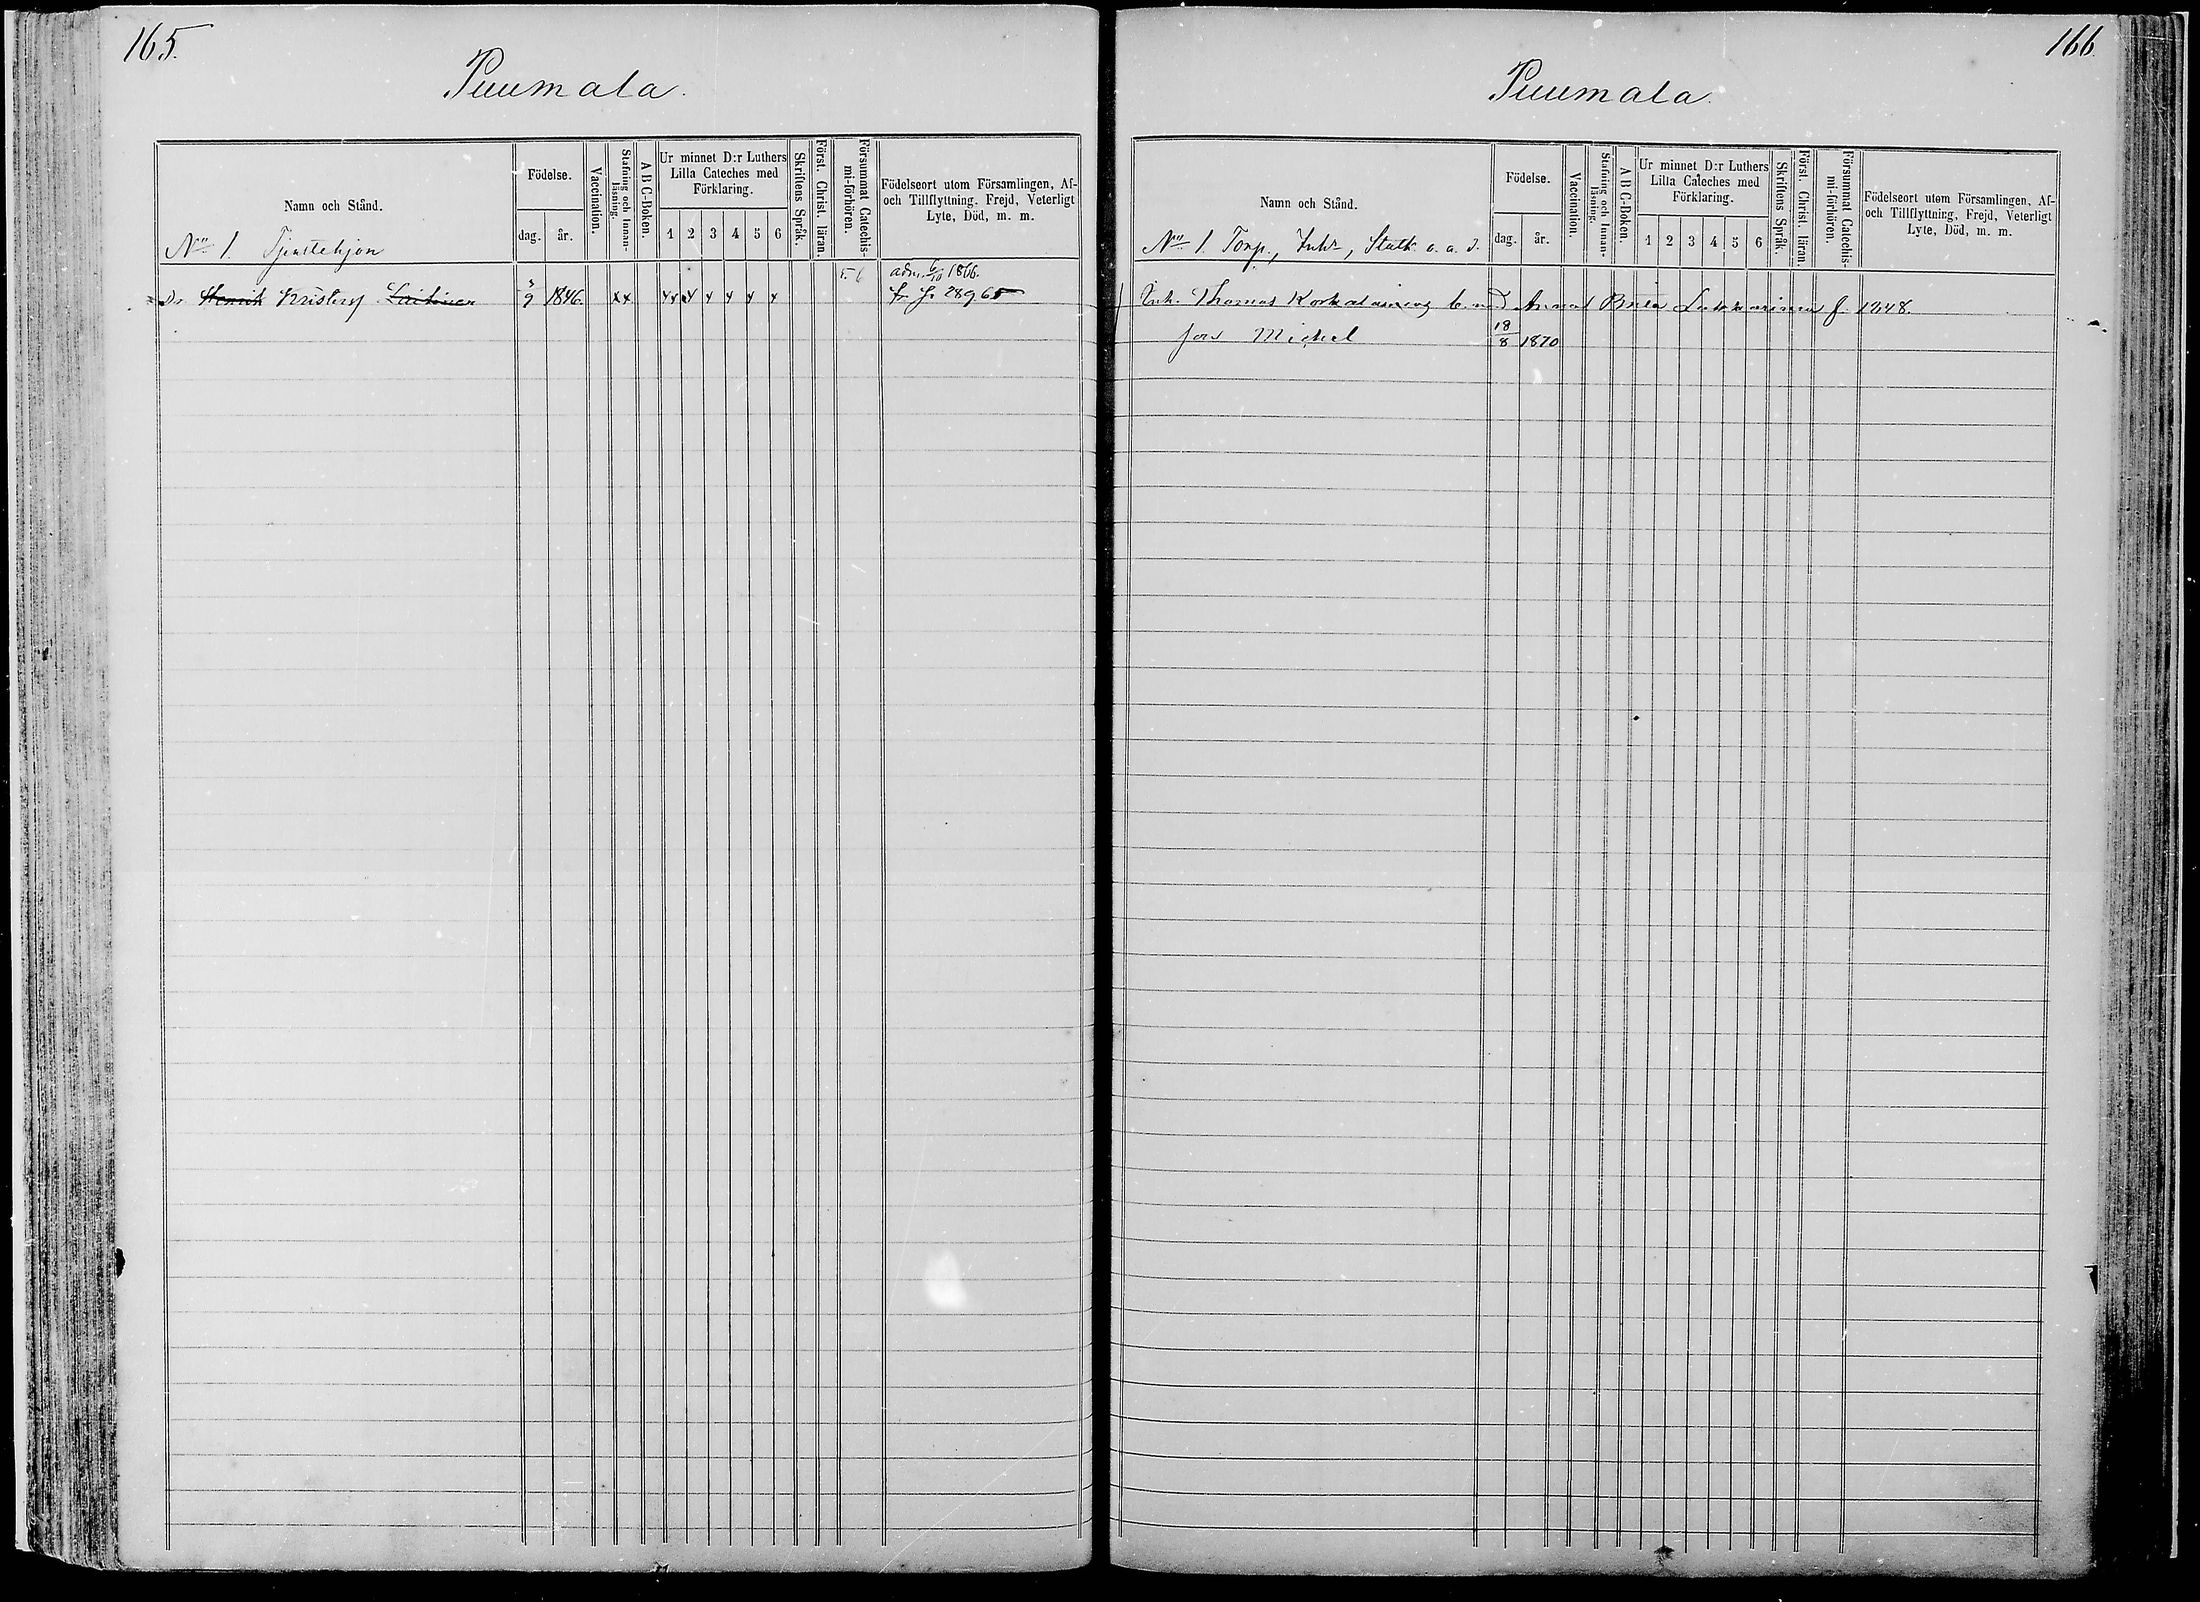 165.
Puumala.
Namn och Stånd.
Födelse.
dag.
år.
Vaccination.
Stafning och Innan-
läsning.
A B C-Boken.
Ur minnet D:r Luthers
Lilla Cateches med
Förklaring.
1 2 3 4 5 6
Skriftens Språk.
Först. Christ. läran.
Försummat Catechis-
mi-förhören.
Födelseort utom Församlingen, Af-
och Tillflyttning. Frejd, Veterligt
Lyte, Död, m. m.
No 1. Tjenstehjon
5 6 adm. 6/10 1866.
Dr Henrik Kristersson 3/9 1846. xx
166.
Puumala.
Namn och Stånd.
Födelse.
dag.
år.
Vaccination.
Stafning och Innan-
läsning.
A B C-Boken.
Ur minnet D:r Luthers
Lilla Cateches med
Förklaring.
1 2 3 4 5 6
Skriftens Språk.
Först. Christ. läran.
Försummat Catechis-
mi-förhören.
Födelseort utom Församlingen, Af-
och Tillflyttning, Frejd, Veterligt
Lyte, Död, m. m.
No 1. Torp., Inh., Statk. o. a. d.
Inh. Thomas Anna f. 1848.
Michel 18/8 1870